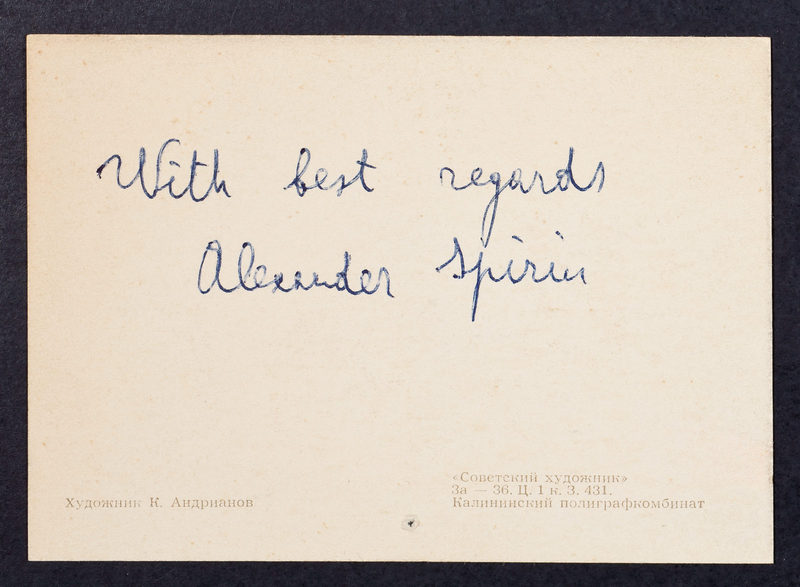 With best regards
Alexander Spirin
Художник К. Андрианов
«Советский художник»
За — 36. Ц. 1 к. З. 431.
Калининский полиграфкомбинат